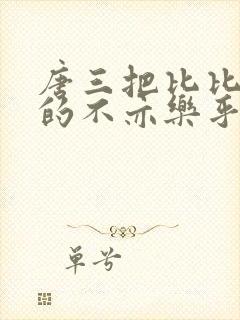 唐三把比比
的不亦樂乎
單号